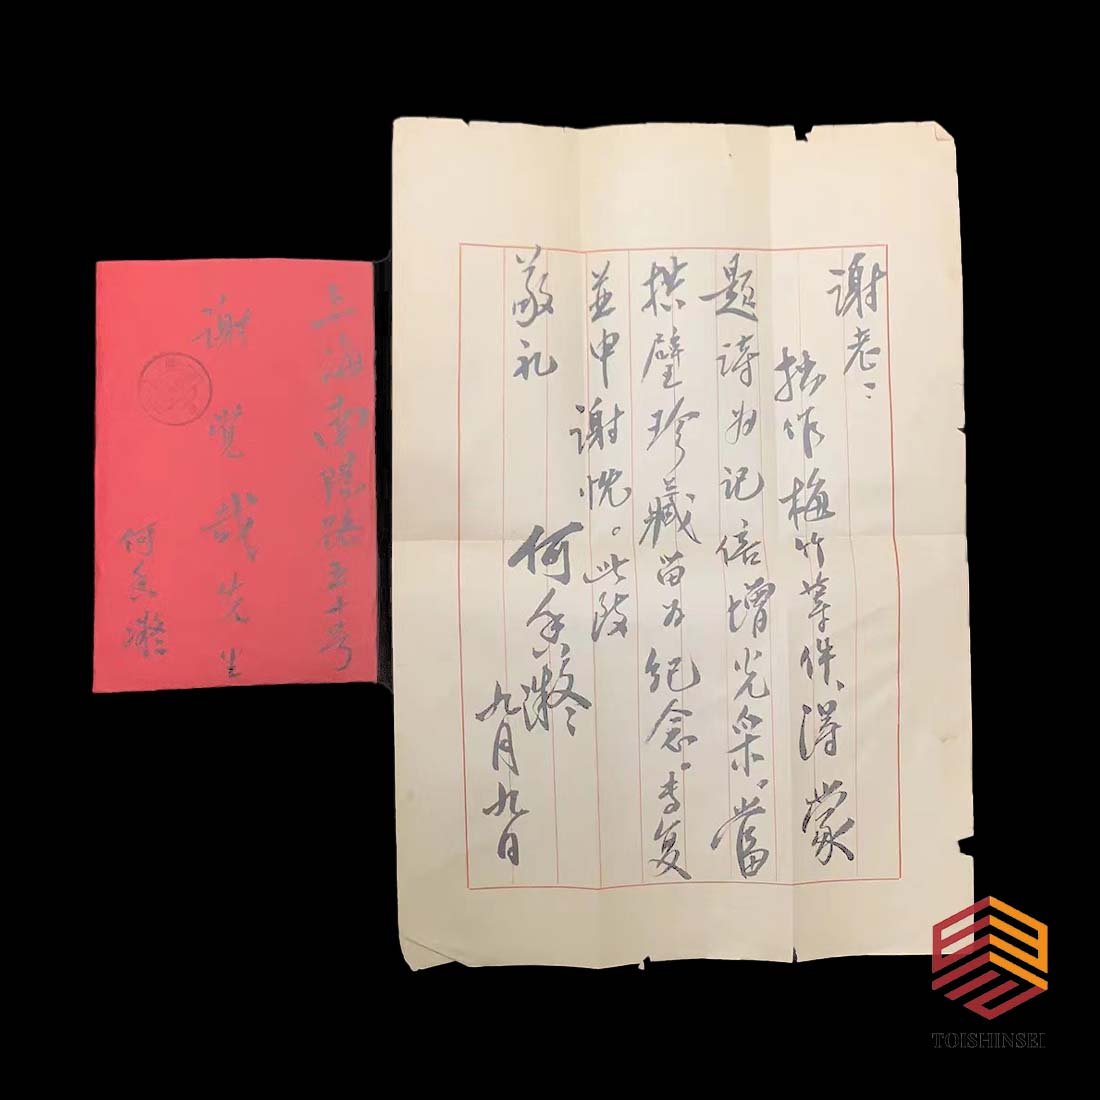 謝老：
拙作梅竹等件、得蒙
題诗为记倍增光采、當
拱璧珍藏留为纪念、专复
並申謝忱。此致
敬礼
何香凝
九月九日
上海南陽路五十号
謝覚哉先生
何香凝
TOISHINSEI